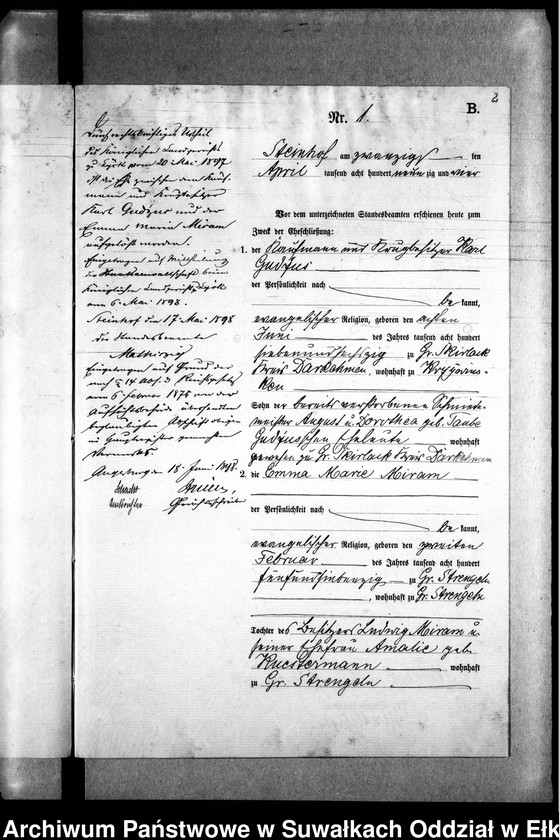 2
B.
Nr. 1.
Steinhof am zwanzigsten
April tausend acht hundert neunzig und vier
Vor dem unterzeichneten Standesbeamten erschienen heute zum
Zweck der Eheschließung:
1. der Kaufmann und Krugbesitzer Karl
Gudjus
der Persönlichkeit nach
be kannt,
evangelischer Religion, geboren den achten
Juni des Jahres tausend acht hundert
siebenundsechszig zu Gr. Skirlack
Kreis Darkehmen, wohnhaft zu
ken
Sohn der bereits verstorbenen Schmiede-
meister August u. Dorothea geb. Taube
Gudjusschen Eheleute wohnhaft
gewesen zu Gr. Skirlack Kreis Darkehmen
2. die Emma Marie Miram
der Persönlichkeit nach
be kannt,
evangelischer Religion, geboren den zweiten
Februar des Jahres tausend acht hundert
fünfundsiebenzig zu Gr. Strengeln
, wohnhaft zu Gr. Strengeln
Tochter des Besitzers Ludwig Miram u.
seiner Ehefrau Amalie geb.
Kuestermann wohnhaft
zu Gr. Strengeln
Durch rechtskräftiges Urtheil
des Königlichen Landgerichts
zu Lyck vom 20 Mai 1897
ist die Ehe zwischen dem Kauf-
mann und Krugbesitzer
Karl Gudjus und der
Emma Marie Miram
aufgelöst worden.
Eingetragen auf
der Staatsanwaltschaft beim
Königlichen Landgericht Lyck
vom 6. Mai 1898.
Steinhof den 17 Mai 1898
der Standesbeamte
Eingetragen auf Grund der
nach § 14 Abs. 3
vom 6 Februar 1875 von der
Aufsichtsbehörde
beglaubigten Abschrift
Angerburg 18. Juni 1898.
Archiwum Państwowe w Suwałkach Oddział w Ełk